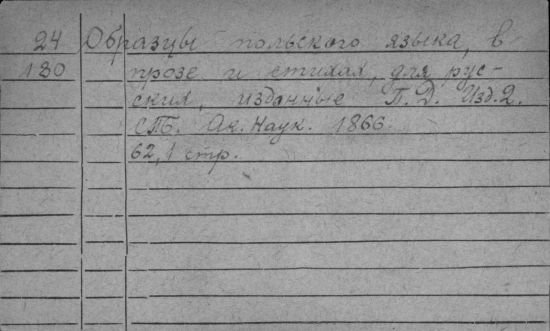 24 Образцы польского языка, в
180 прозе и стихах, для рус-
ских, изданные П. Д. Изд. 2.
СПБ. Ак. Наук. 1866.
62, 1 стр.